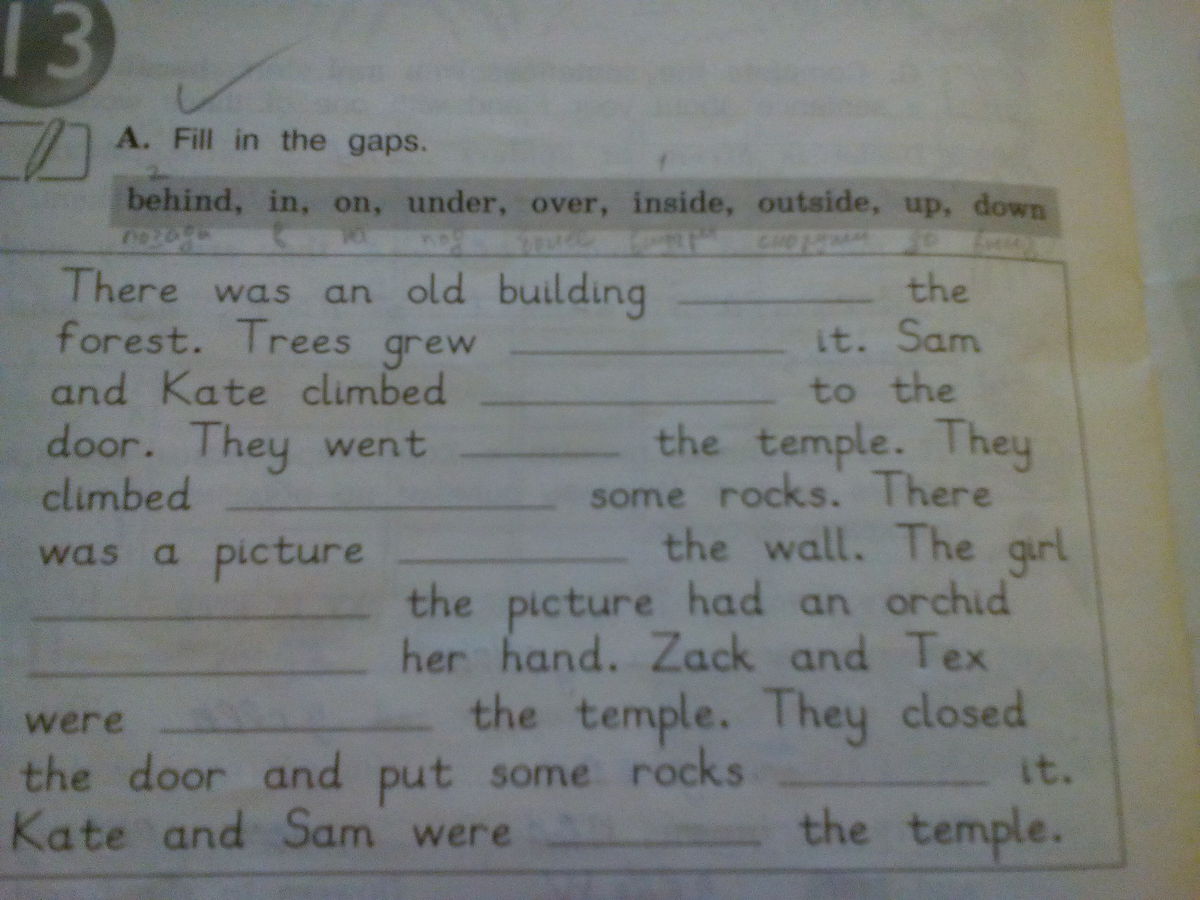 13
A. Fill in the gaps.
2
behind, in, on, under, over, inside, outside, up, down
позади в на под
There was an old building ________ the
forest. Trees grew ________ it. Sam
and Kate climbed ________ to the
door. They went ________ the temple. They
climbed ________ some rocks. There
was a picture ________ the wall. The girl
________ the picture had an orchid
________ her hand. Zack and Tex
were ________ the temple. They closed
the door and put some rocks ________ it.
Kate and Sam were ________ the temple.